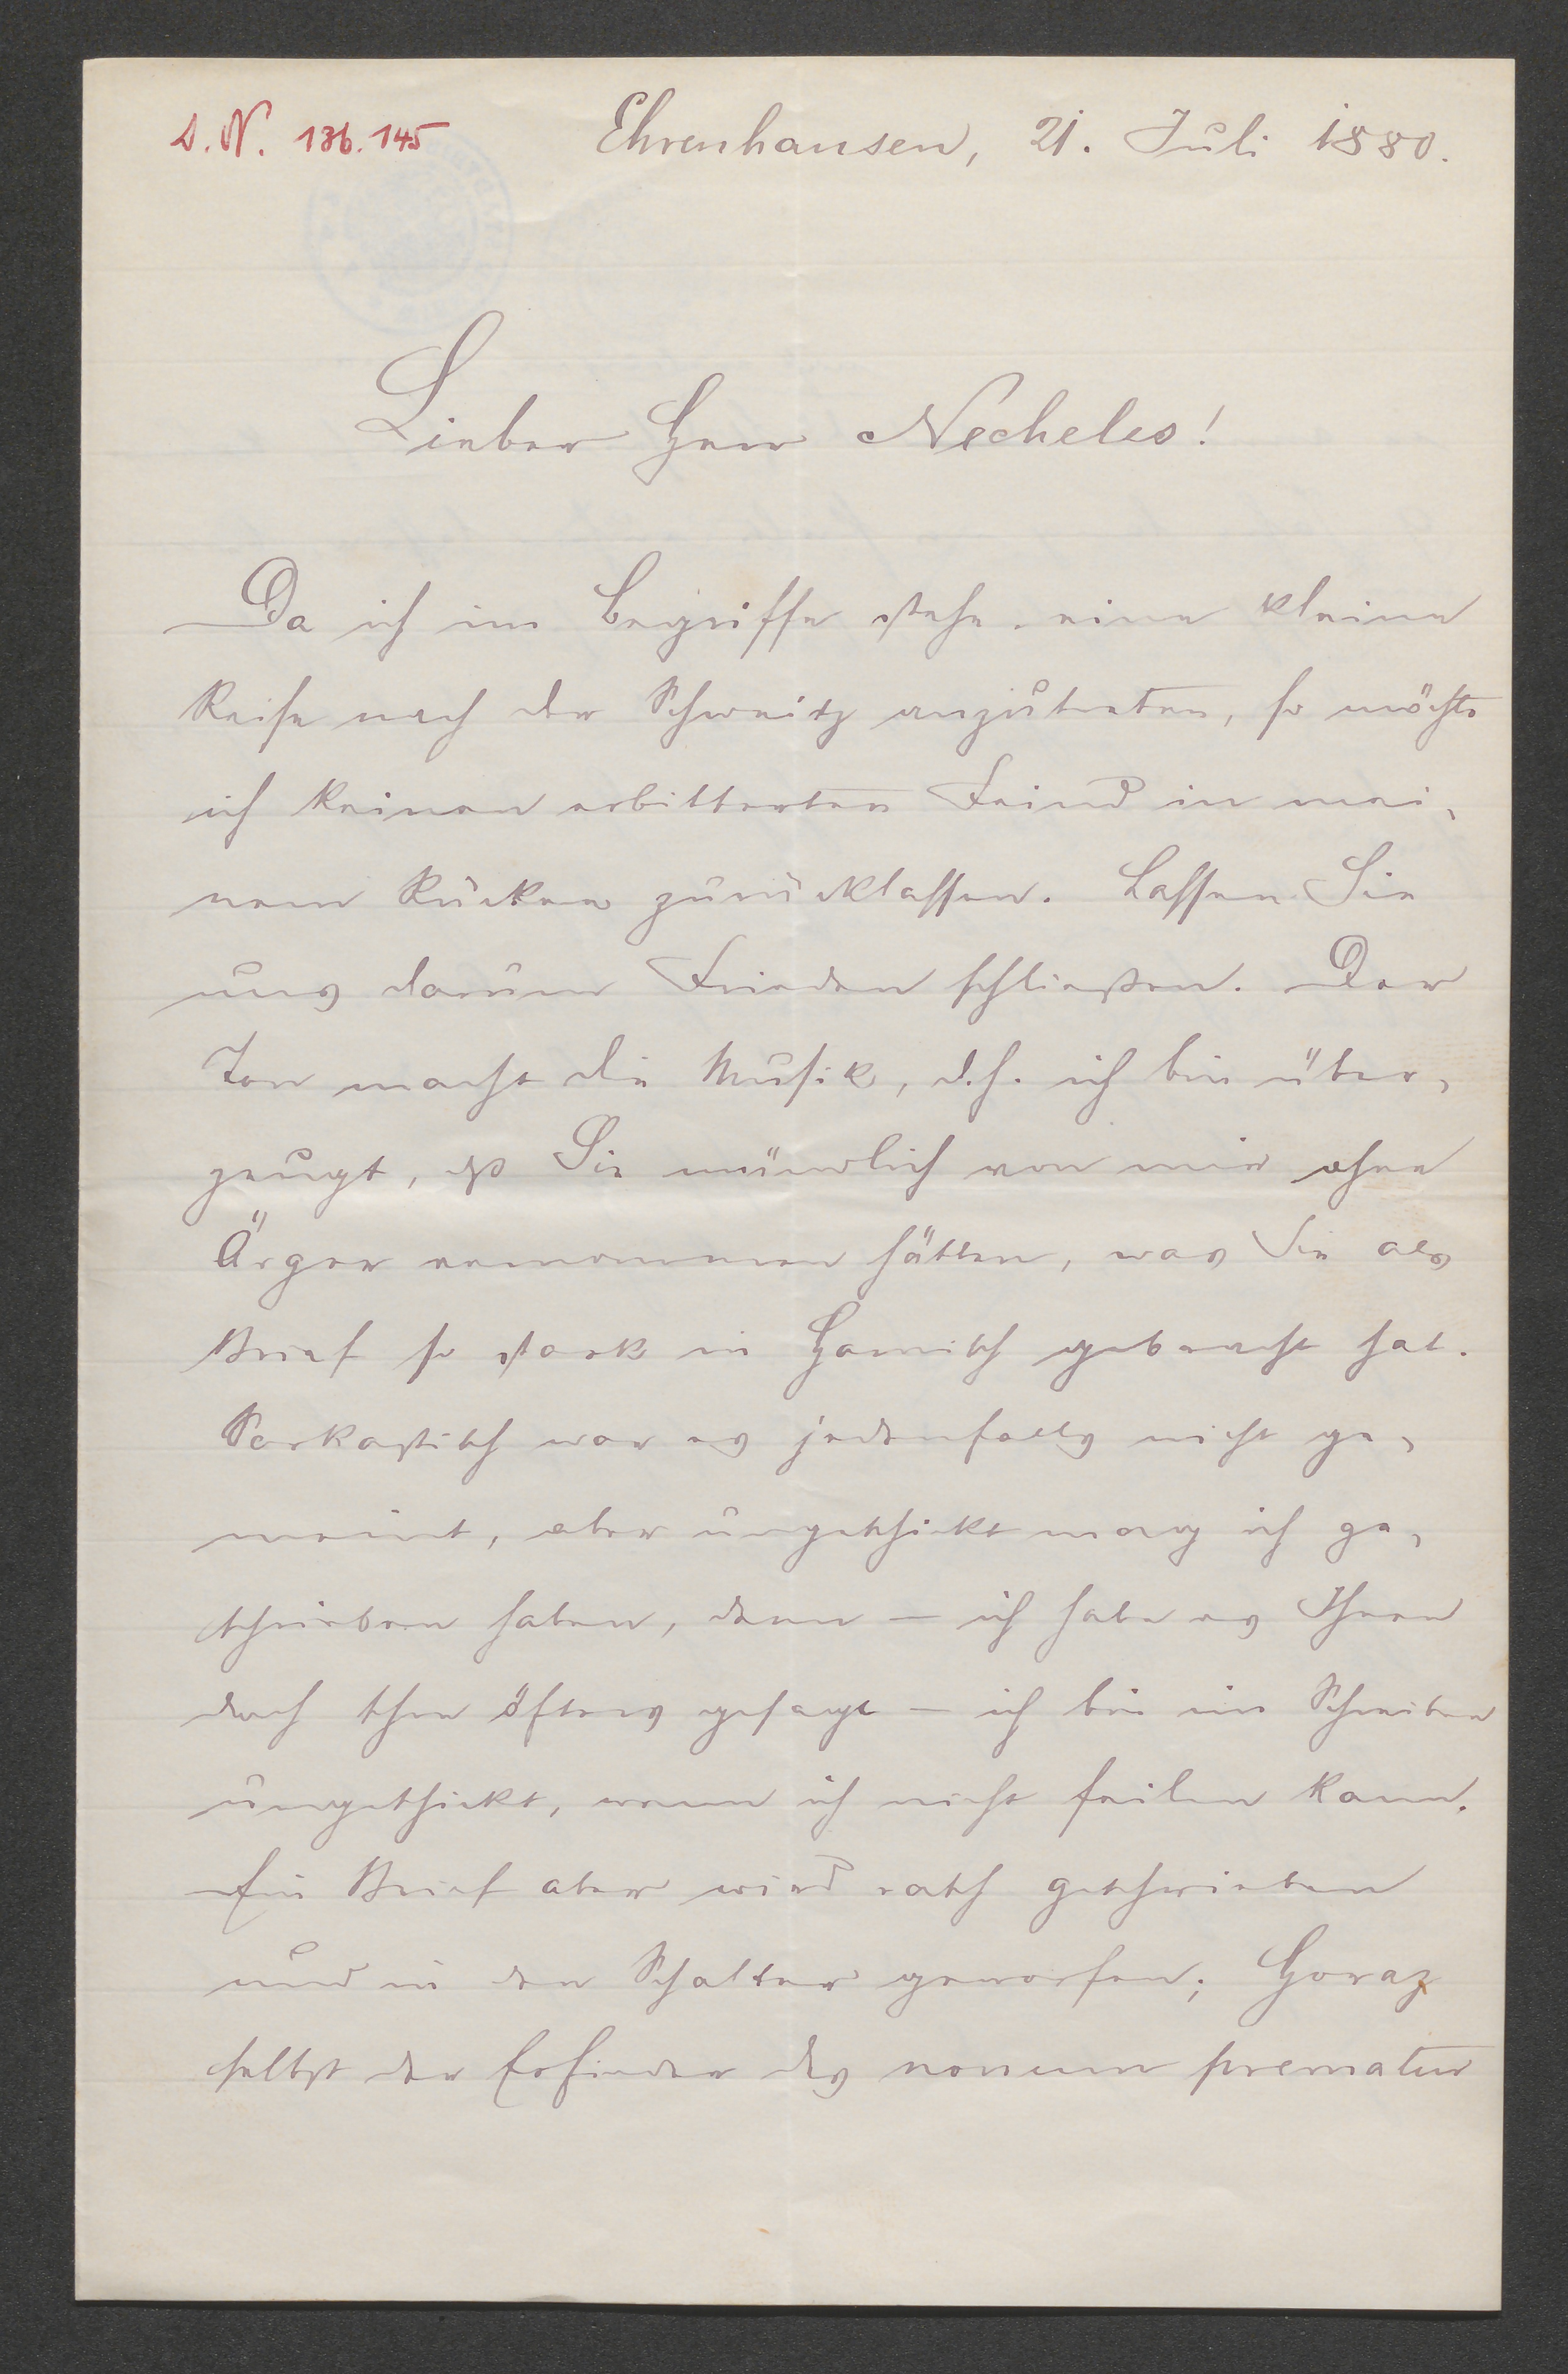 D. N. 136.145
Ehrenhausen, 21. Juli 1880.
Lieber Herr Necheles!
Da ich im Begriffe stehe eine kleine
Reise nach der Schweitz anzutreten, so möchte
ich keinen erbitterten Feind in mei-
nem Rücken zurücklassen. Lassen Sie
uns darum Frieden schließen. Der
Ton macht die Musik, d. h. ich bin über-
zeugt, daß Sie mündlich von mir ohne
Ärger vernommen hätten, was Sie als
Brief so stark in Harnisch gebracht hat.
Sarkastisch war es jedenfalls nicht ge-
meint, aber ungeschickt mag ich ge-
schrieben haben, denn – ich habe es Ihnen
doch schon öfters gesagt – ich bin im Schreiben
ungeschickt, wenn ich nicht feilen kann.
Ein Brief aber wird rasch geschrieben
und in den Schalter geworfen; Horaz
selbst der Erfinder des nonum prematur